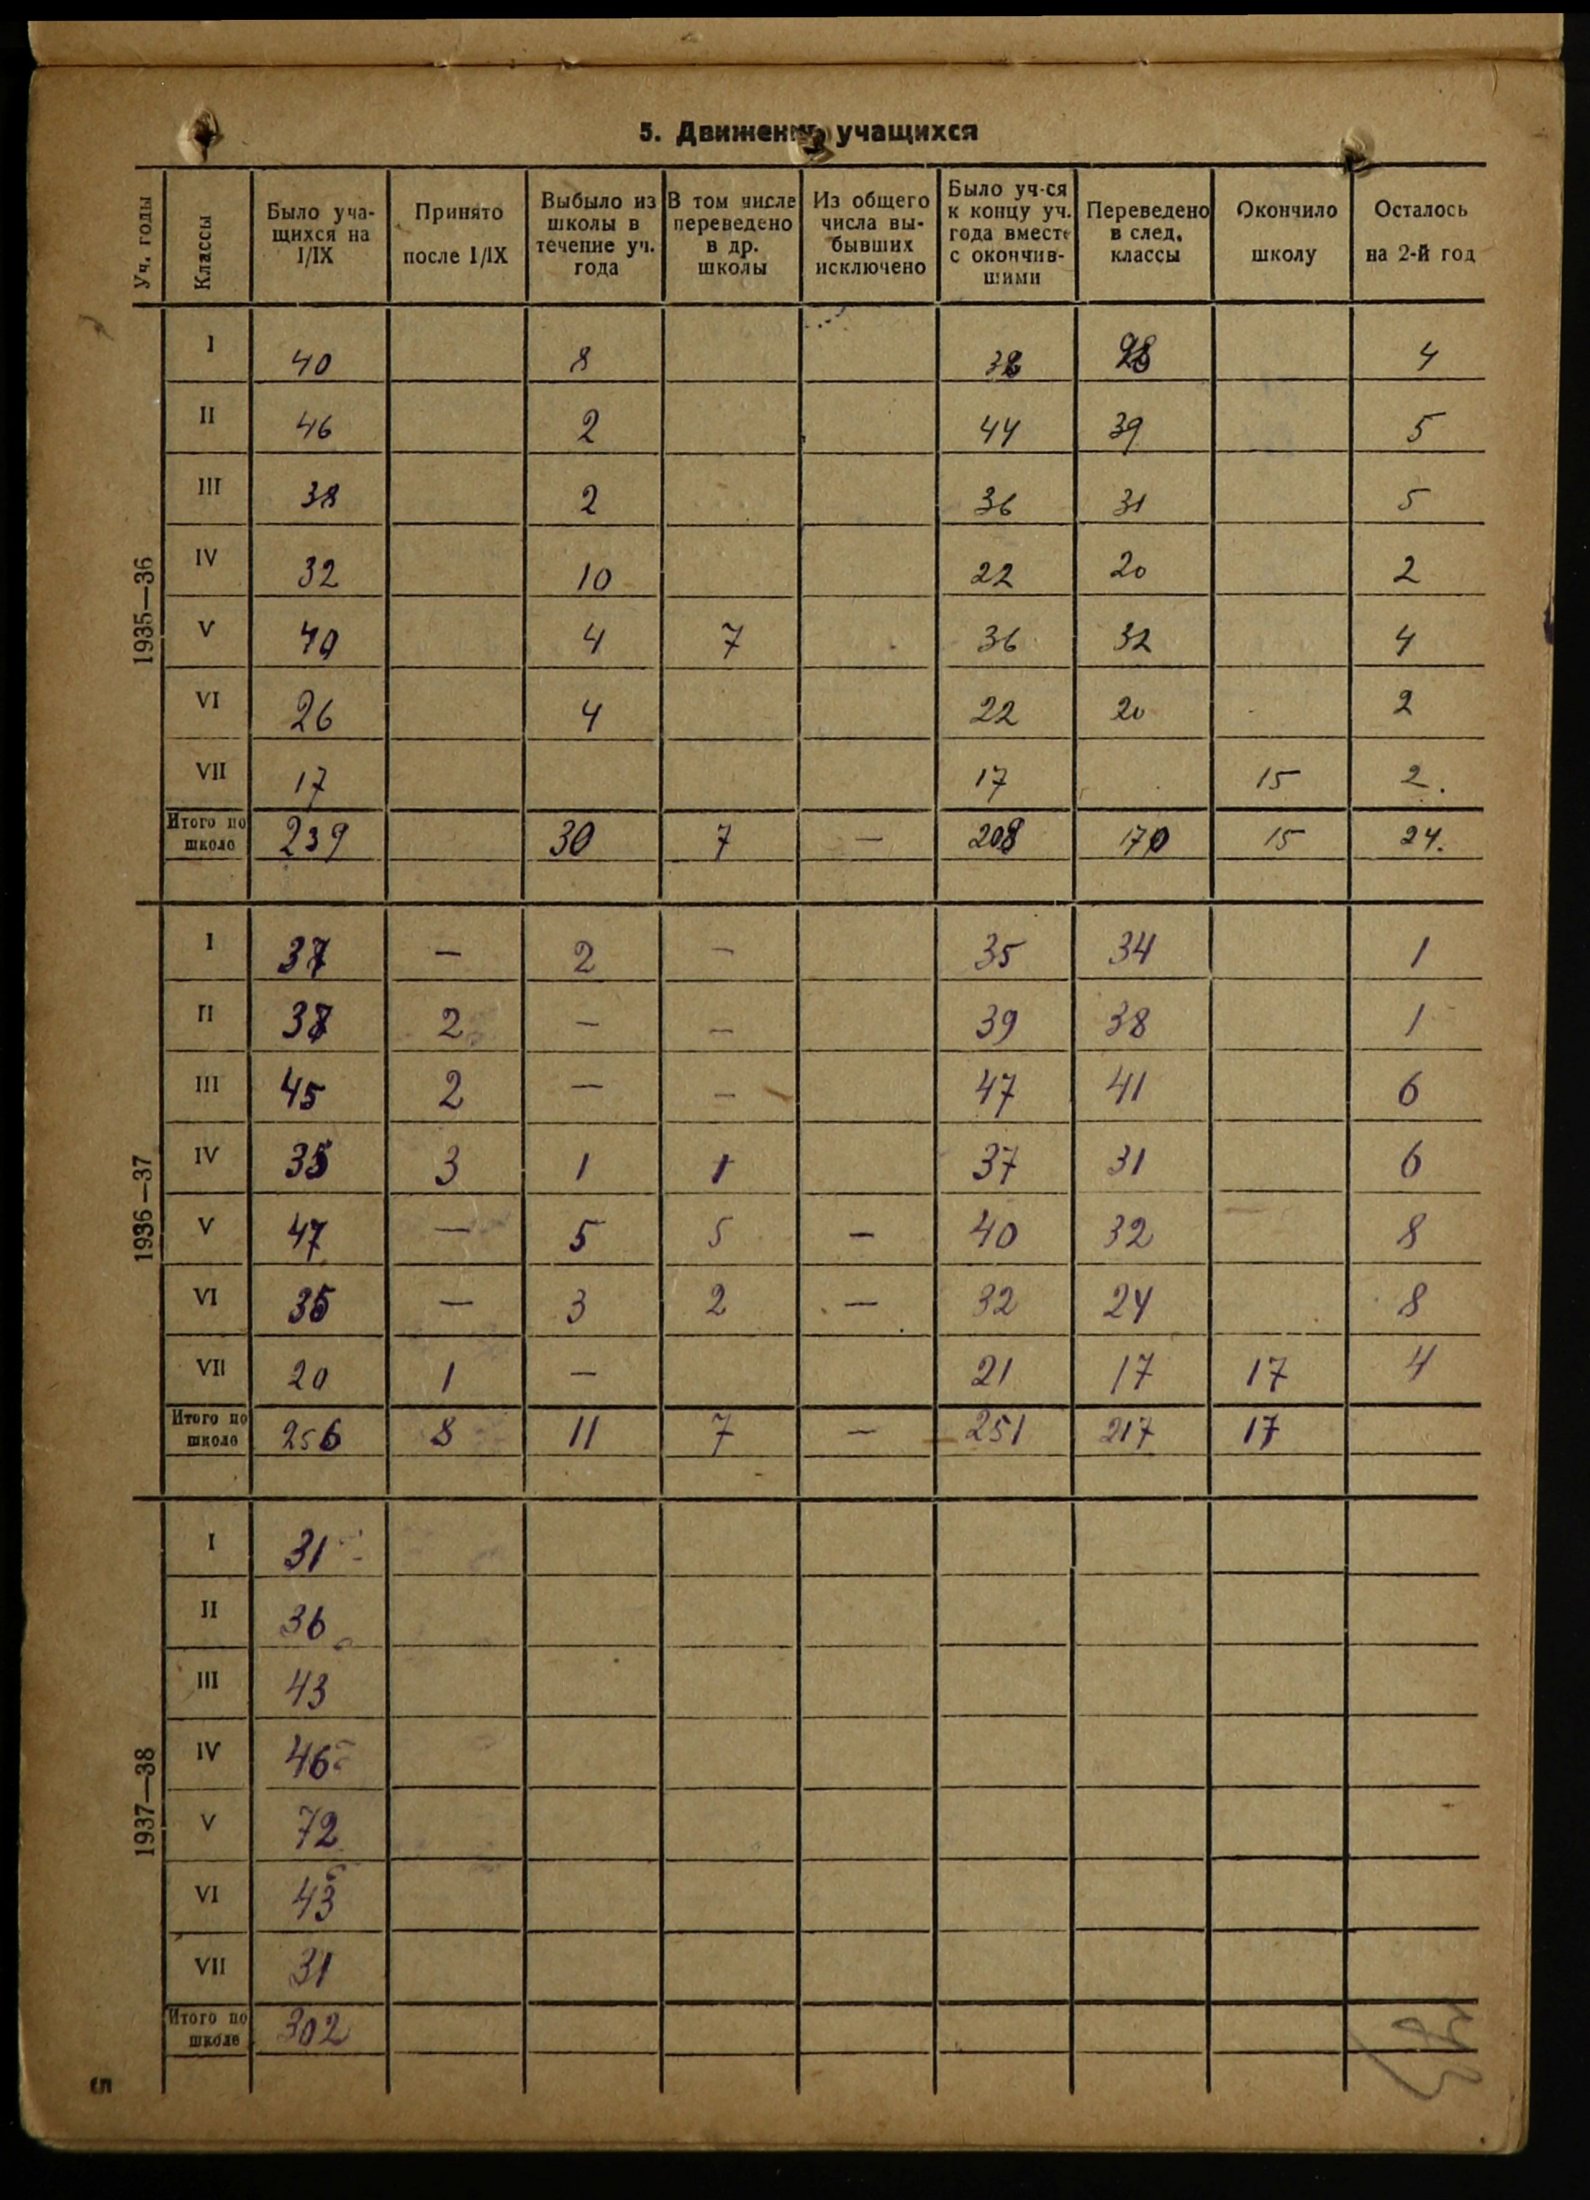 5. Движение учащихся
Уч. годы | Классы | Было уча-щихся на 1/IX | Принято после 1/IX | Выбыло из школы в течение уч. года | В том числе переведено в др. школы | Из общего числа вы-бывших исключено | Было уч-ся к концу уч. года вместе с окончив-шими | Переведено в след. классы | Окончило школу | Осталось на 2-й год
1935—36
I 40 8 4
II 46 2 44 39 5
III 38 2 36 31 5
IV 32 10 22 20 2
V 40 4 7 36 32 4
VI 26 4 22 20 2
VII 17 17 15 2.
Итого по школе 239 30 7 — 208 170 15 24.
1936—37
I 37 — 2 — 35 34 1
II 37 2 — — 39 38 1
III 45 2 — — 47 41 6
IV 35 3 1 1 37 31 6
V 47 — 5 5 — 40 32 8
VI 35 — 3 2 — 32 24 8
VII 20 1 — 21 17 17 4
Итого по школе 256 8 11 7 — 251 217 17
1937—38
I 31
II 36
III 43
IV 46
V 72
VI 43
VII 31
Итого по школе 302
5